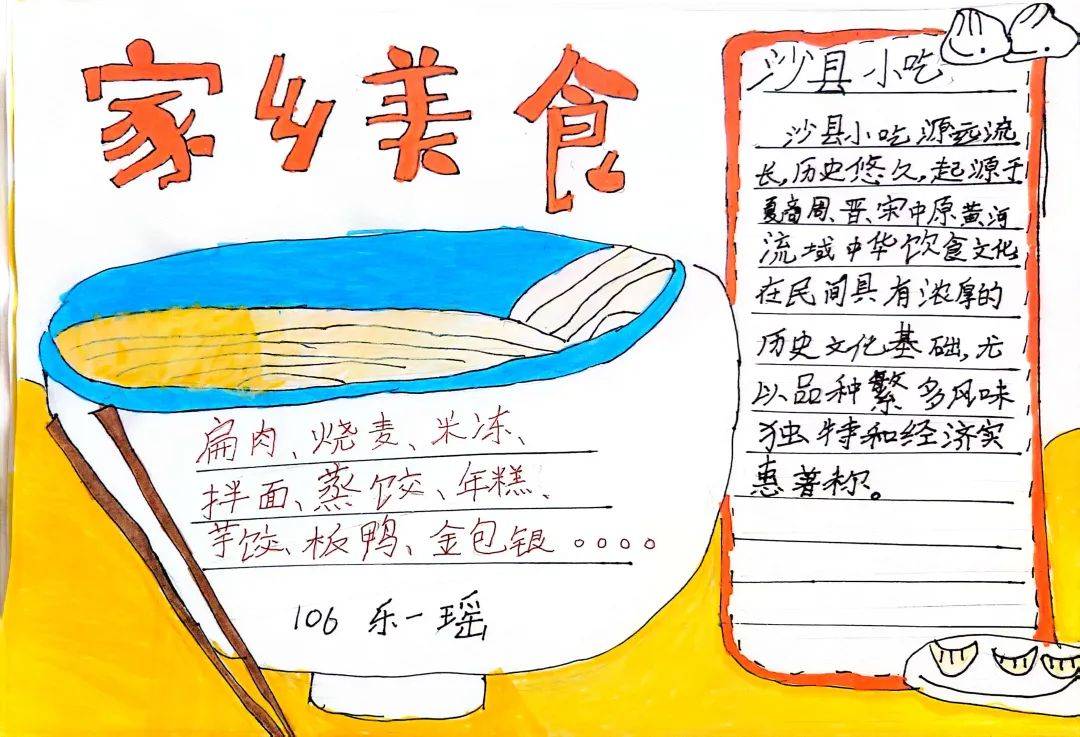 家乡美食
沙县小吃
沙县小吃源远流
长,历史悠久,起源于
夏商周、晋、宋中原黄河
流域中华饮食文化
在民间具有浓厚的
历史文化基础,尤
以品种繁多风味
独特和经济实
惠著称。
扁肉、烧麦、米冻、
拌面、蒸饺、年糕、
芋饺、板鸭、金包银。。。。
106 乐一瑶